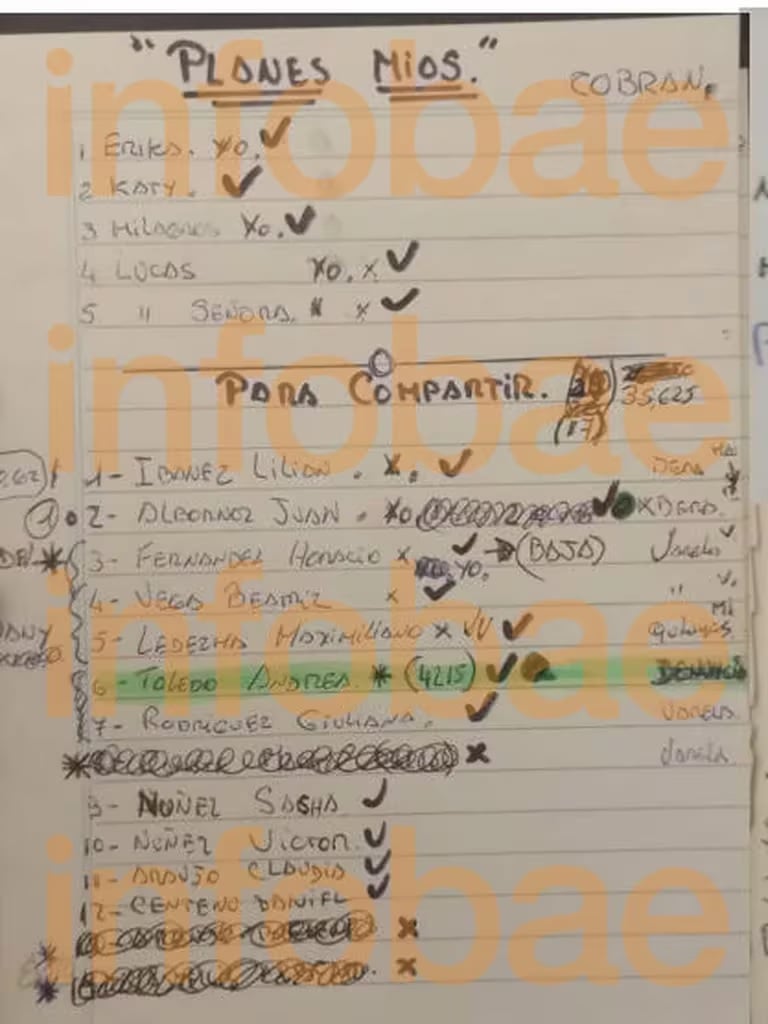 "PLANES MIOS."
COBRAN.
1 ERIKA. YO. ✓
2 KATY. ✓
3 MILAGROS YO. ✓
4 LUCAS YO. x ✓
5 " SEÑORA. " x ✓
PARA COMPARTIR. (17) 35,625
1- IBAÑEZ LILIAN. X. ✓
1 • 2- ALBORNOZ JUAN. YO ✓
3- FERNANDEZ HORACIO x YO. ✓ → (BAJA) Varela ✓
4- VEGA BEATRIZ x ✓ " V.
5- LEDEZMA MAXIMILIANO x VV ✓ Quilmes
6- TOLEDO ANDREA. * (4215) ✓
7- RODRIGUEZ GIULIANA. ✓ VARELA
* x Varela
9- NUÑEZ SASHA ✓
10- NUÑEZ Victor ✓
11- ARAUJO CLAUDIA ✓
12- CENTENO DANIEL ✓
x
* x
*
infobae
infobae
infobae